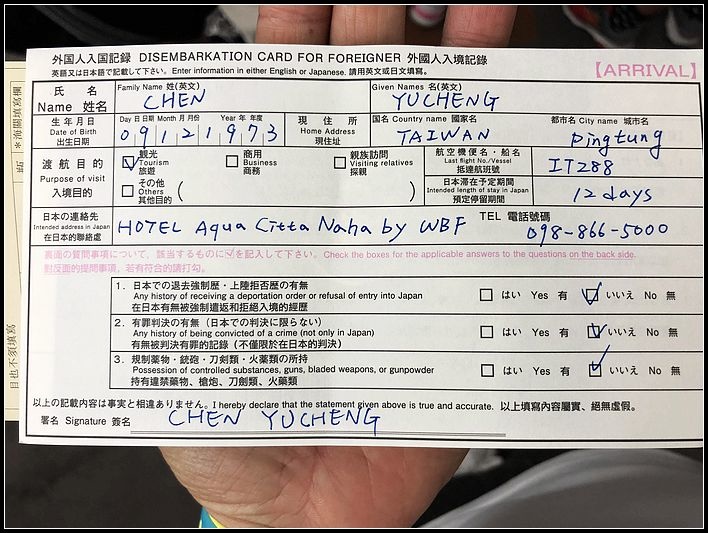 外国人入国記録 DISEMBARKATION CARD FOR FOREIGNER 外國人入境記錄
英語又は日本語で記載して下さい。Enter information in either English or Japanese. 請用英文或日文填寫。
【ARRIVAL】
氏名 Name 姓名
Family Name 姓(英文) CHEN
Given Names 名(英文) YUCHENG
生年月日 Date of Birth 出生日期
Day 日 日期 Month 月 月份 Year 年 年度
09121973
現住所 Home Address 現住址
国名 Country name 國家名 TAIWAN
都市名 City name 城市名 Pingtung
渡航目的 Purpose of visit 入境目的
観光 Tourism 旅遊
商用 Business 商務
親族訪問 Visiting relatives 探親
その他 Others 其他目的 ( )
航空機便名・船名 Last flight No./Vessel 抵達航班號 IT288
日本滞在予定期間 Intended length of stay in Japan 預定停留期間 12 days
日本の連絡先 Intended address in Japan 在日本的聯絡處
HOTEL Aqua Citta Naha by WBF
TEL 電話號碼 098-866-5000
裏面の質問事項について、該当するものに☑を記入して下さい。Check the boxes for the applicable answers to the questions on the back side.
對反面的提問事項，若有符合的請打勾。
1. 日本での退去強制歴・上陸拒否歴の有無
Any history of receiving a deportation order or refusal of entry into Japan
在日本有無被強制遣返和拒絕入境的經歷
はい Yes 有 いいえ No 無
2. 有罪判決の有無（日本での判決に限らない）
Any history of being convicted of a crime (not only in Japan)
有無被判決有罪的記錄（不僅限於在日本的判決）
はい Yes 有 いいえ No 無
3. 規制薬物・銃砲・刀剣類・火薬類の所持
Possession of controlled substances, guns, bladed weapons, or gunpowder
持有違禁藥物、槍炮、刀劍類、火藥類
はい Yes 有 いいえ No 無
以上の記載内容は事実と相違ありません。I hereby declare that the statement given above is true and accurate. 以上填寫內容屬實、絕無虛假。
署名 Signature 簽名 CHEN YUCHENG
*海關填寫欄
目也不須填寫